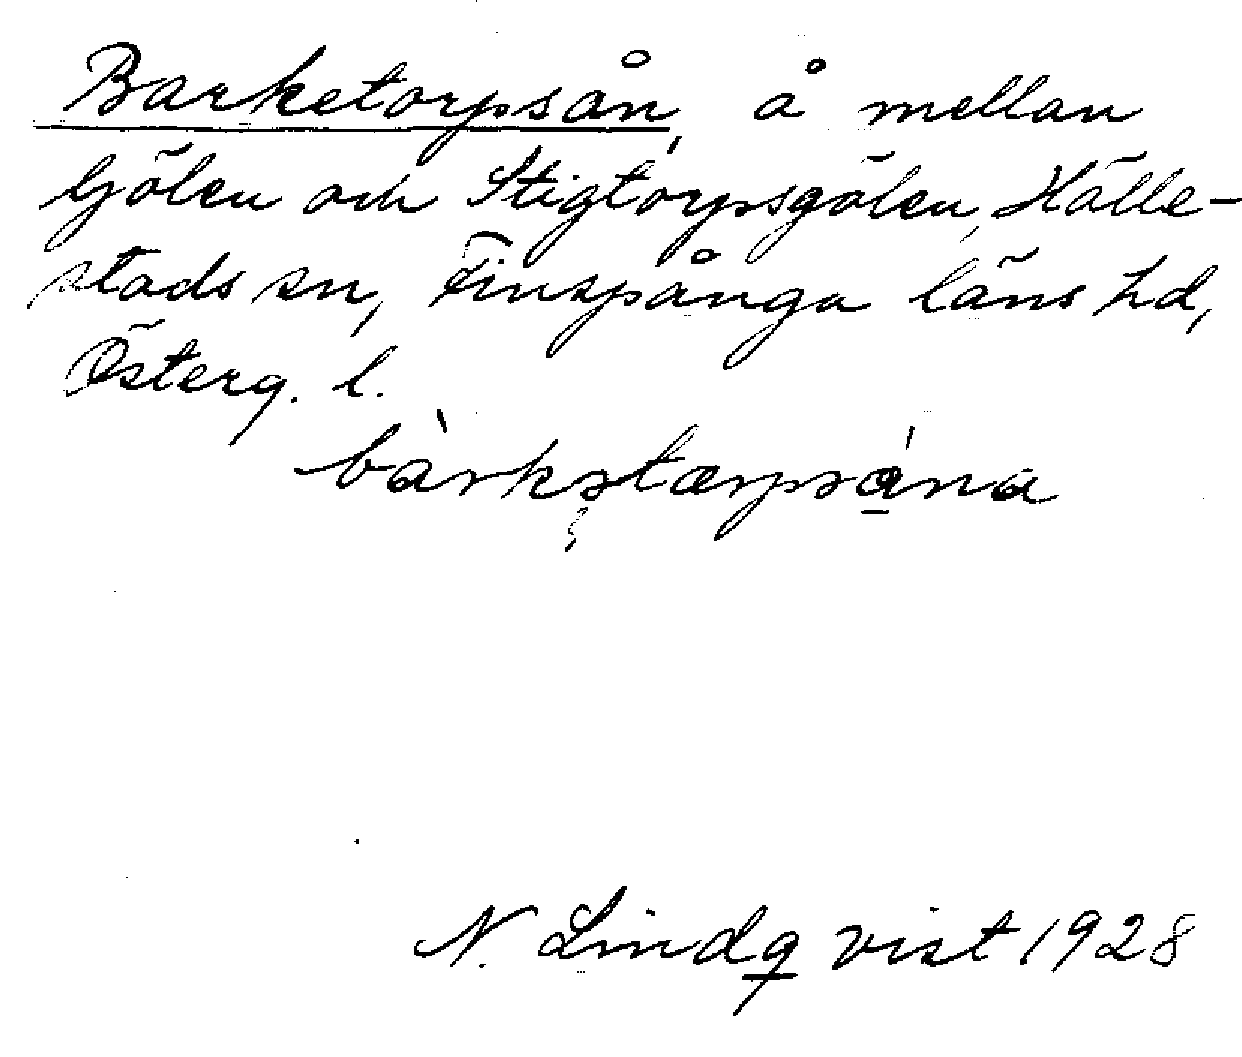 Barketorpsån, å mellan
Gölen och Stigtorpsgölen, Hälle-
stads sn, Finspånga läns hd,
Österg. l.
bàrkətærpsána
N. Lindqvist 1928